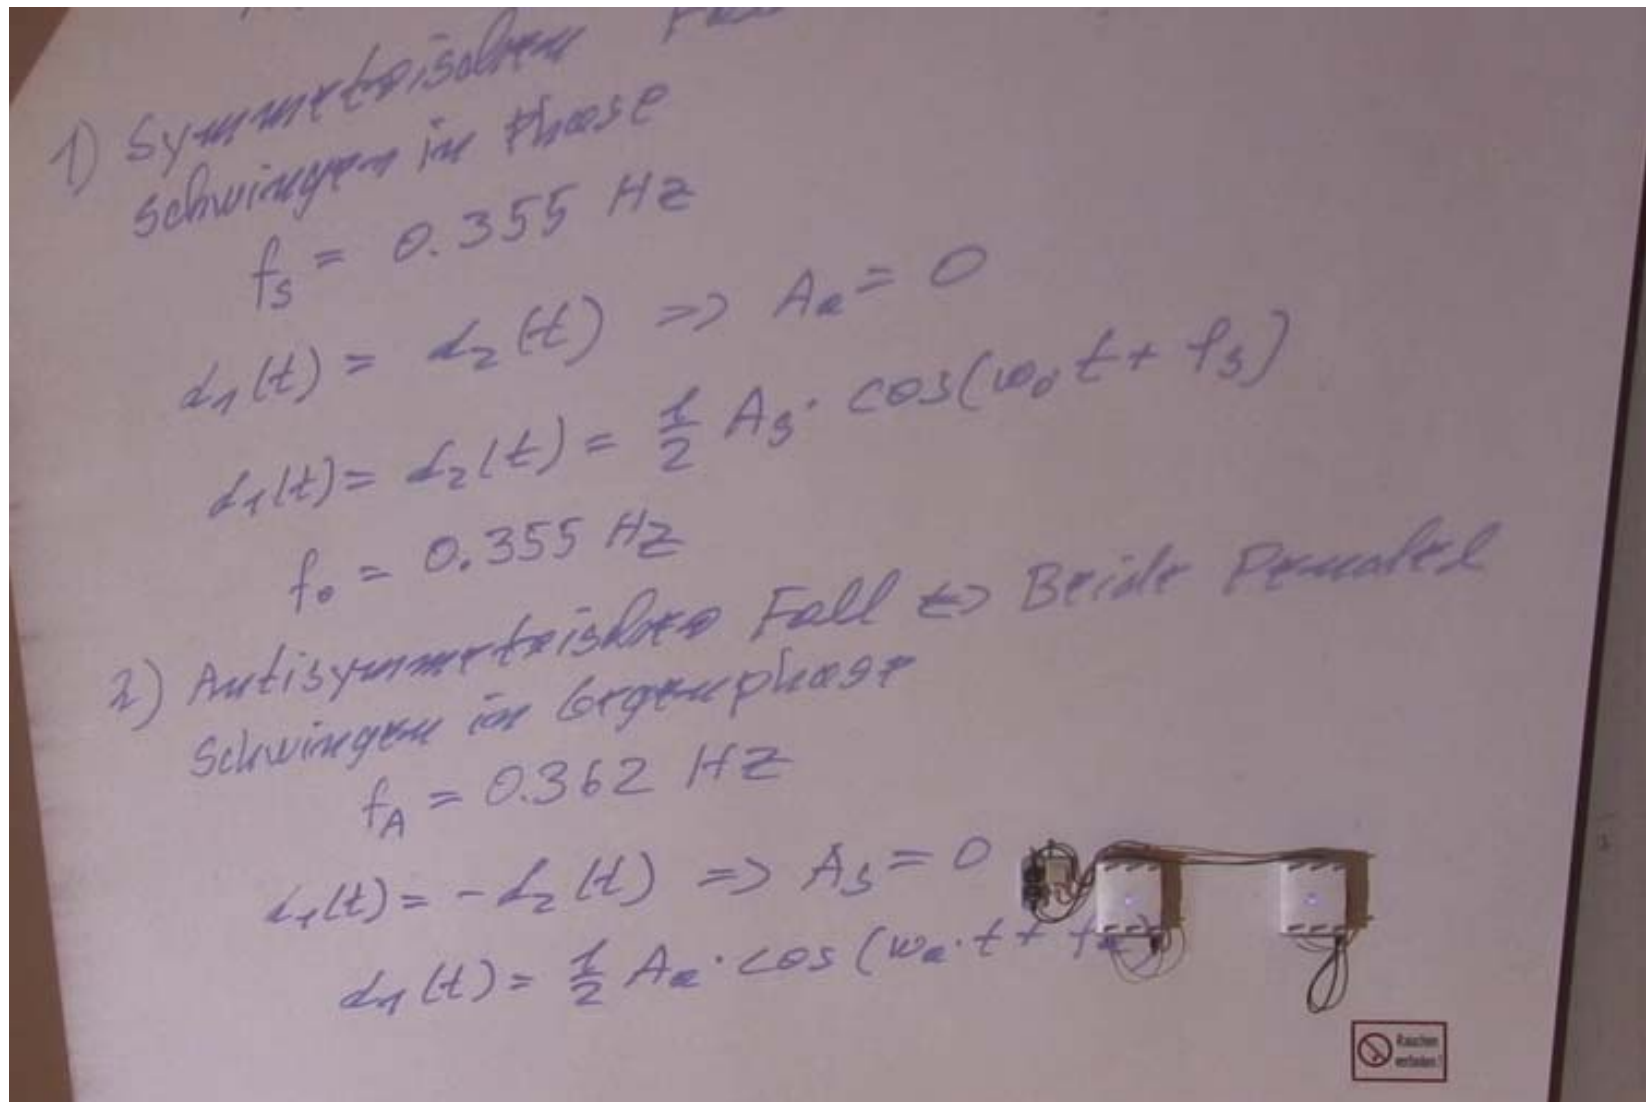 1) Symmetrischen Fall
Schwingen in Phase
fₛ = 0.355 Hz
α₁(t) = α₂(t) => Aₐ = 0
α₁(t) = α₂(t) = 1/2 Aₛ · cos(ω₀ t + φₛ)
f₀ = 0.355 Hz
2) Antisymmetrischen Fall <=> Beide Pendel
Schwingen in Gegenphase
f_A = 0.362 Hz
α₁(t) = - α₂(t) => Aₛ = 0
α₁(t) = 1/2 Aₐ · cos(ωₐ · t + φₐ)
Rauchen
verboten!